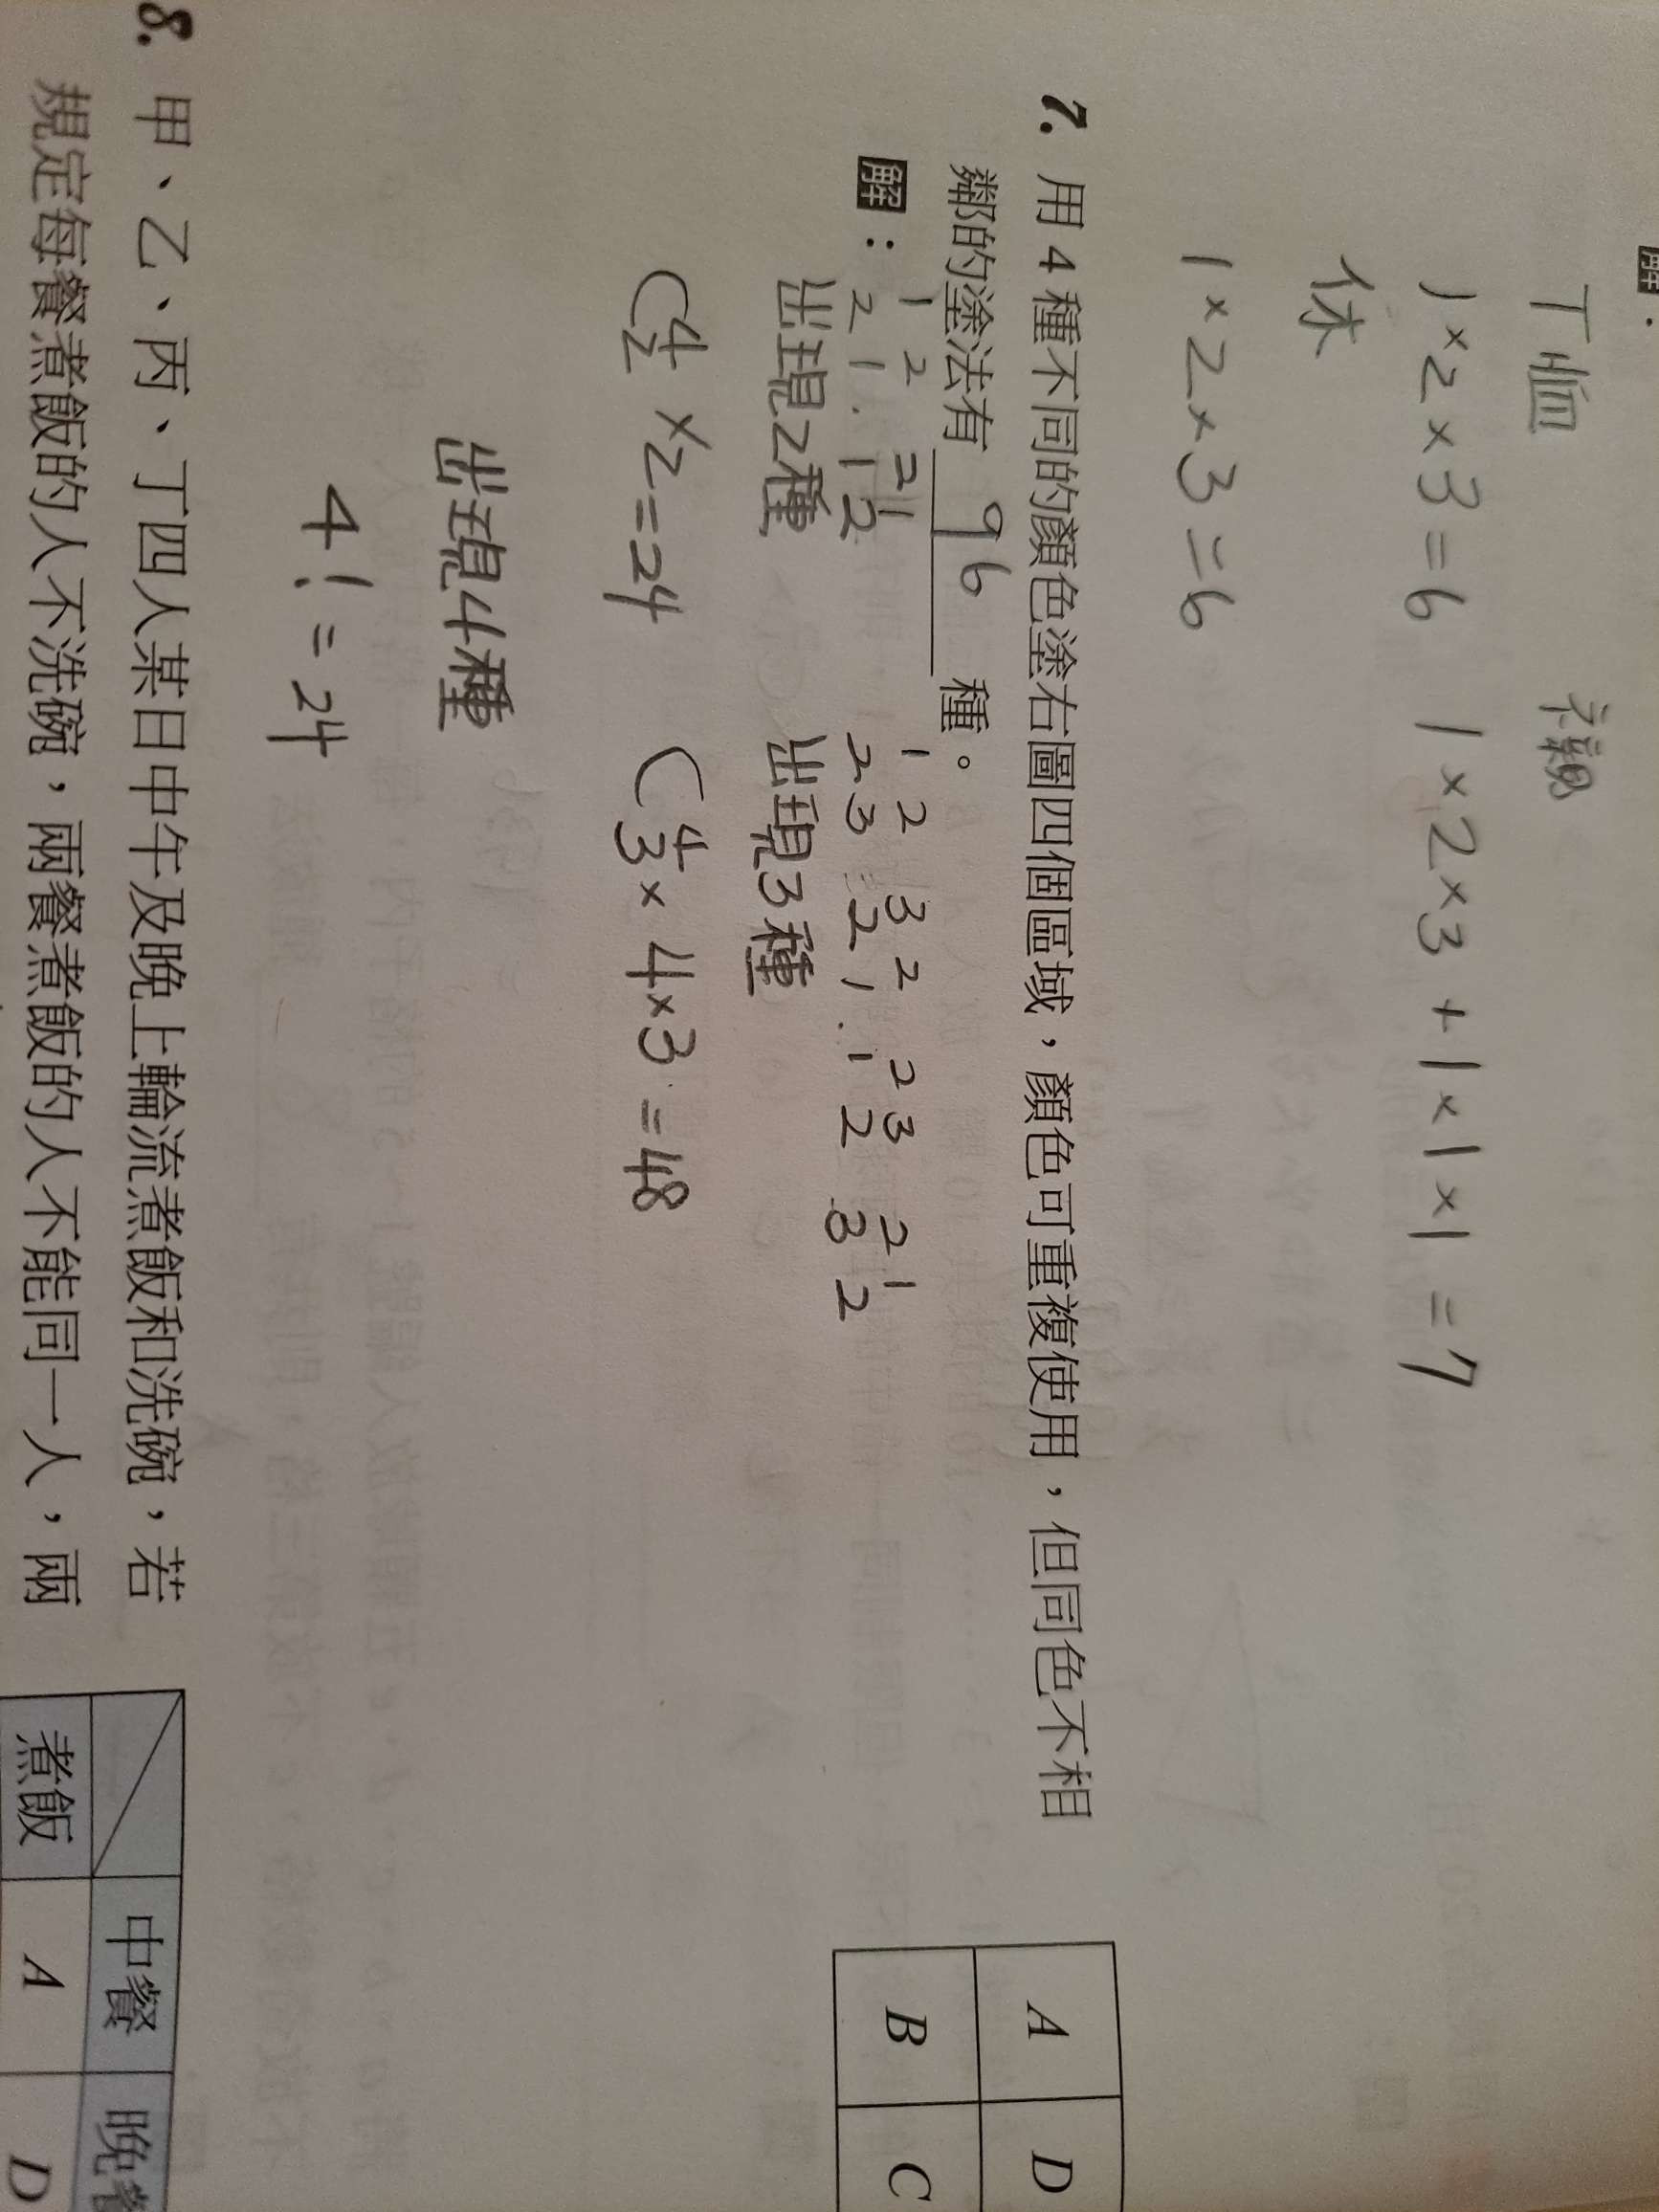 解:
T恤 襯
1×2×3=6 1×2×3+1×1×1=7
休
1×2×3=6
7. 用 4 種不同的顏色塗右圖四個區域,顏色可重複使用,但同色不相
鄰的塗法有 96 種。
A D
B C
解:
1 2 2 1 1 2 3 2 2 3 2 1
2 1 . 1 2 2 3 2 1 . 1 2 3 2
出現2種 出現3種
C 4 2 ×2=24 C 4 3 × 4×3 =48
出現4種
4! = 24
8. 甲、乙、丙、丁四人某日中午及晚上輪流煮飯和洗碗,若
規定每餐煮飯的人不洗碗,兩餐煮飯的人不能同一人,兩
中餐 晚餐
煮飯 A D